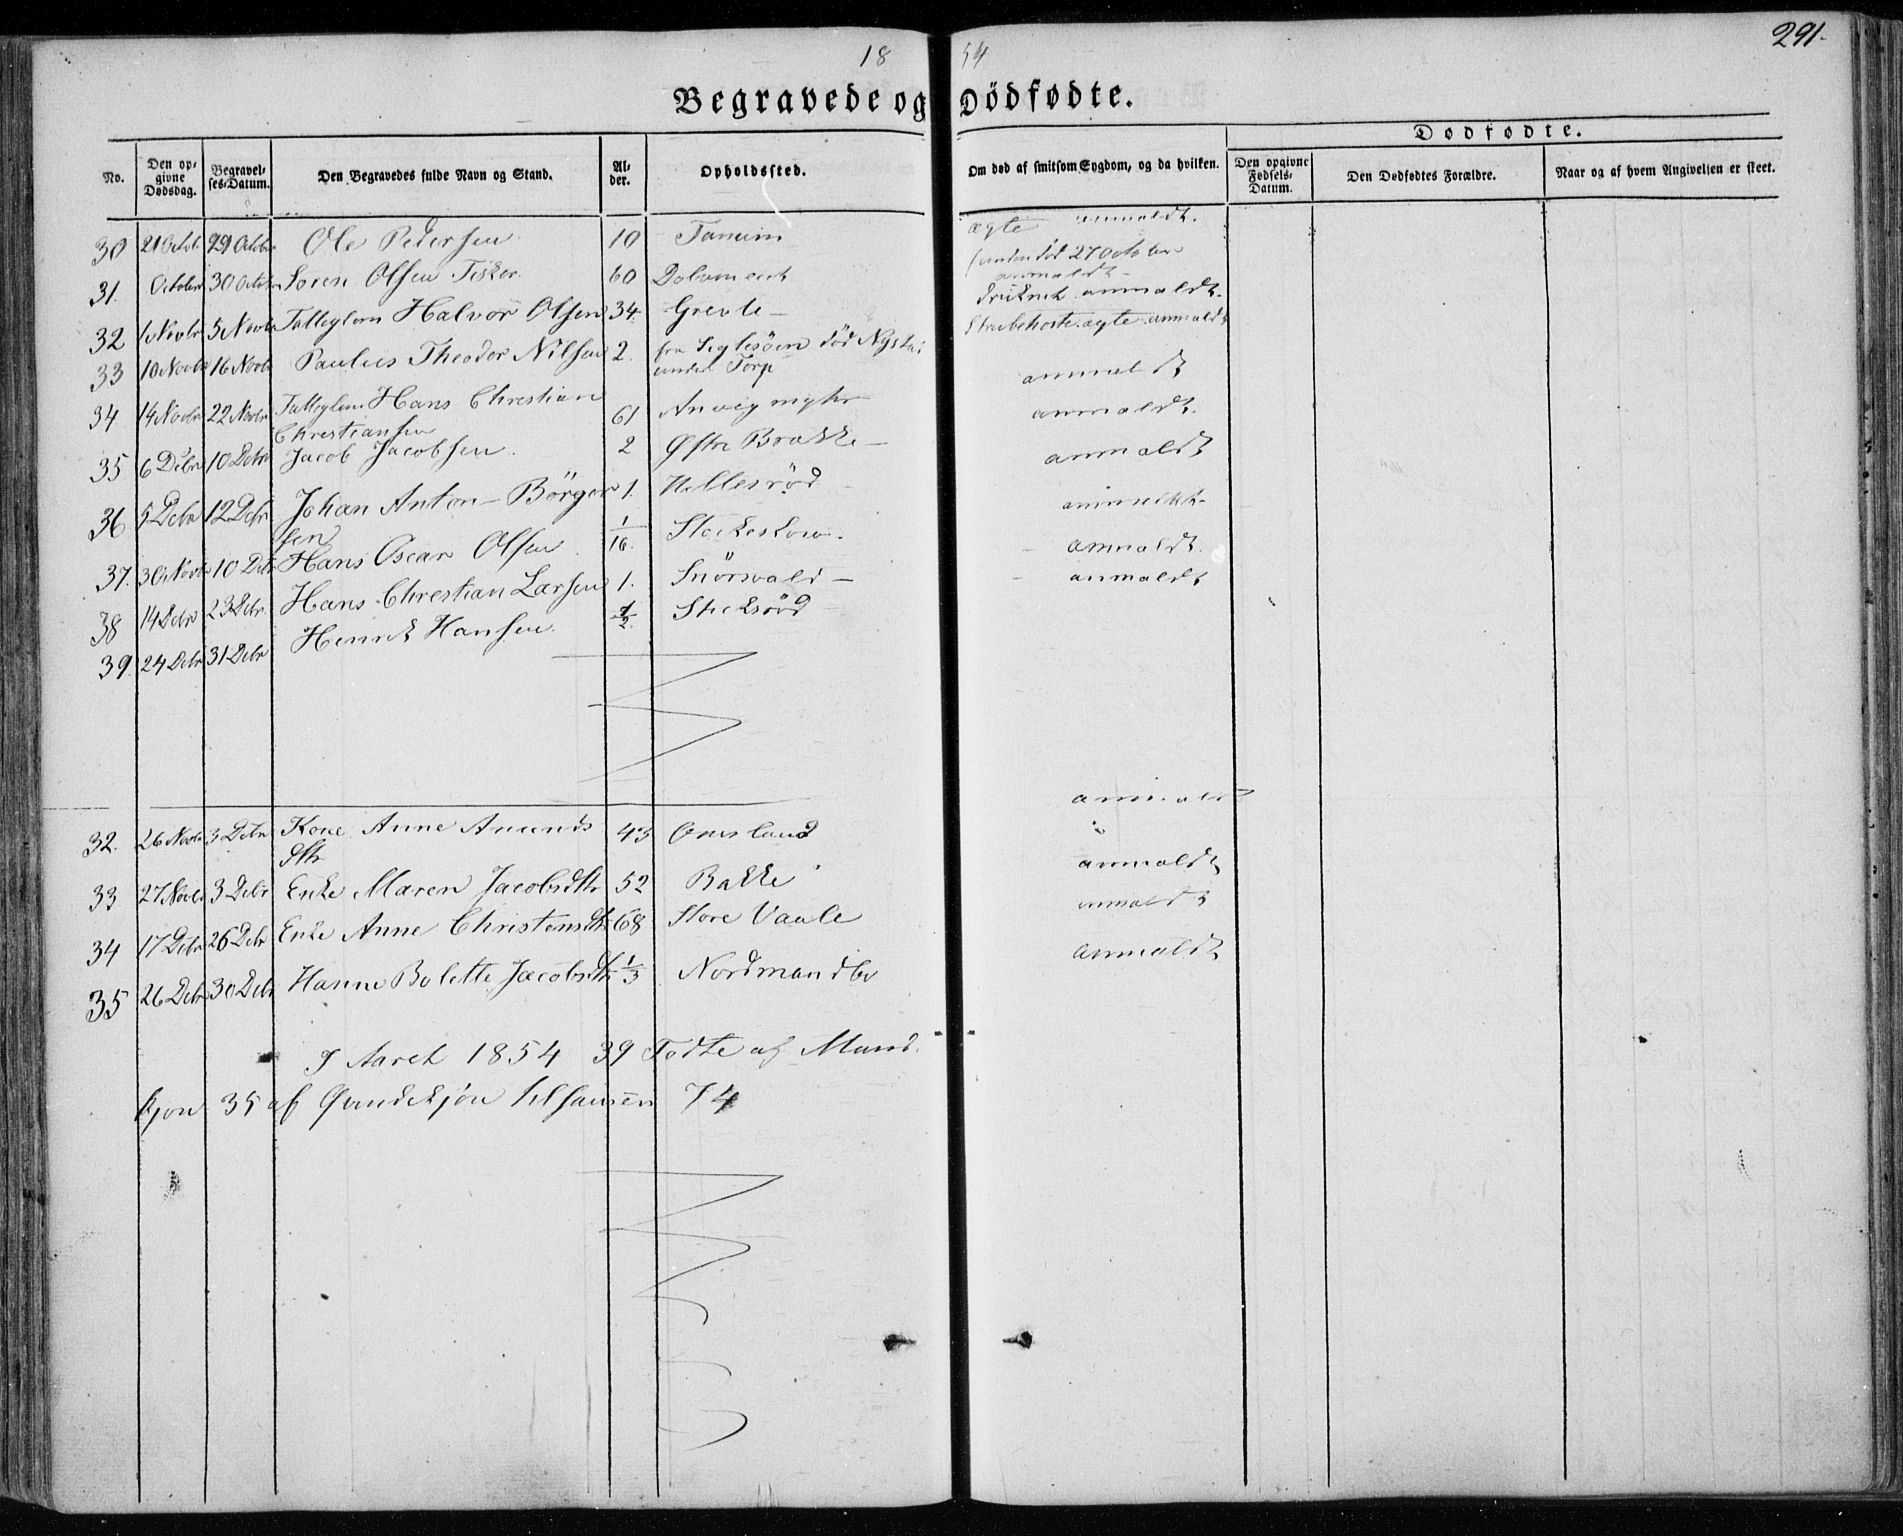 291.
18 54
Begravede og Dödfødte.
Dødfødte.
No.
Den op-
givne
Dødsdag.
Begravel-
ses-Datum.
Den Begravedes fulde Navn og Stand.
Al-
der.
Opholdssted.
Om død af smitsom Sygdom, og da hvilken.
Den opgivne
Fødsels-
Datum.
Den Dødfødtes Forældre.
Naar og af hvem Angivelsen er skeet.
30 21 Octob 29 Octobr Ole Pedersen 10 Tanum ægte anmældt.
31. October 30 Octobr Sören Olsen 60 funden död 27 October
anmældt
32 1 Novbr 5 Novbr Halvor Olsen 34. Grevle druknet anmældt.
33 10 Novbr 16 Novbr Paulus Theodor Nilsen 2. fra död Strubehoste ægte anmeldt
under Torp
34 14 Novbr 22 Novbr Hans Christian 61 anmeldt
Christiansen
35 6 Debr 10 Debr Jacob Jacobsen. 2 Østre Brække anmældt.
36 5 Debr 12 Debr Johan Anton Börger 1. Hellesröd anmældt
sen
37. 30 Novbr 10 Debr Hans Oscar Olsen 1/16. anmeldt.
38 14 Debr 23 Debr Hans Christian Larsen 1. anmældt.
39. 24 Debr 31 Debr Henrik Hansen. 1/2. anmældt
32. 26 Novbr 3 Debr Kone Anne Amunds 43 Omsland anmældt
dtr
33 27 Novbr 3 Debr Enke Maren Jacobsdtr 52 Bakke anmældt
34 17 Debr 26 Debr Enke Anne Christensdtr 68 Store Vaale anmældt
35 26 Debr 30 Debr Hanne Bolette Jacobsdtr 1/3 Nordmandbo anmældt
I Aaret 1854 39 Födte af Mand
kjön 35 af Qvindekjön tilsamen 74